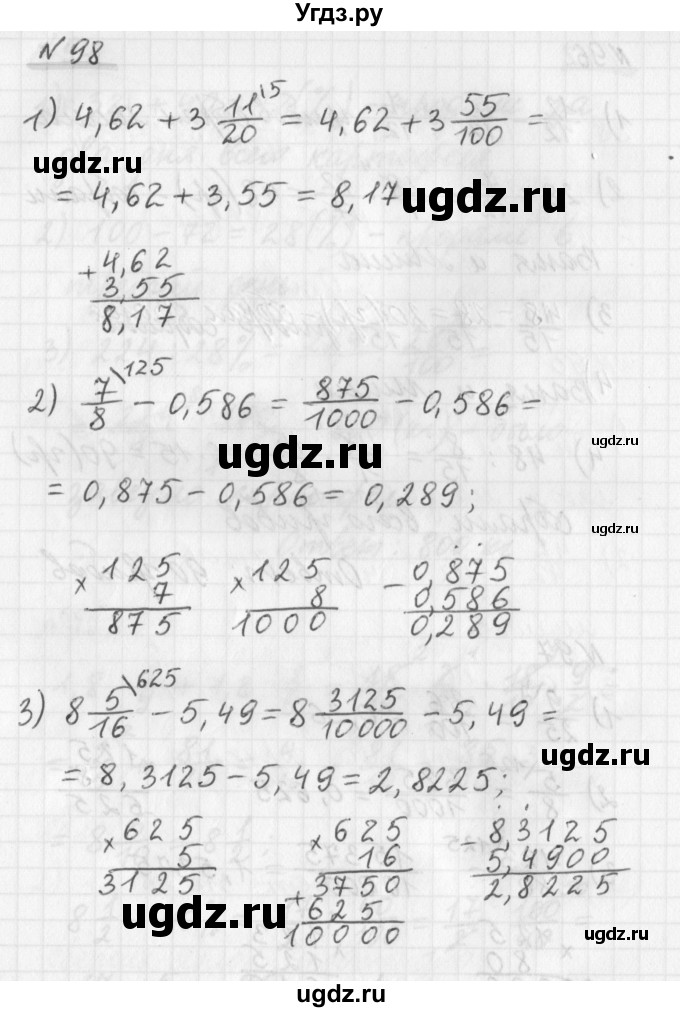 Угдз.ру
N 98
1) 4,62 + 3 11\5/20 = 4,62 + 3 55/100 =
ugdz.ru
= 4,62 + 3,55 = 8,17
ugdz.ru
+ 4,62
3,55
8,17
2) 7\125/8 - 0,586 = 875/1000 - 0,586 =
ugdz.ru
ugdz.ru
= 0,875 - 0,586 = 0,289;
ugdz.ru
× 125 × 125 - 0,875
7 8 0,586
875 1000 0,289
3) 8 5\625/16 - 5,49 = 8 3125/10000 - 5,49 =
ugdz.ru
= 8,3125 - 5,49 = 2,8225;
× 625 × 625 - 8,3125
5 16 5,4900
3125 + 3750 2,8225
625
10000
ugdz.ru
ugdz.ru
ugdz.ru